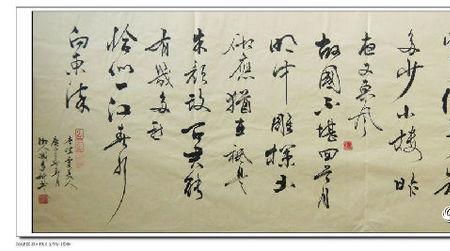 多少小樓昨
夜又東風
故國不堪回首月
明中雕欄玉
砌應猶在祇是
朱顏改問君能
有幾多愁
恰似一江春水
向東流
李煜虞美人